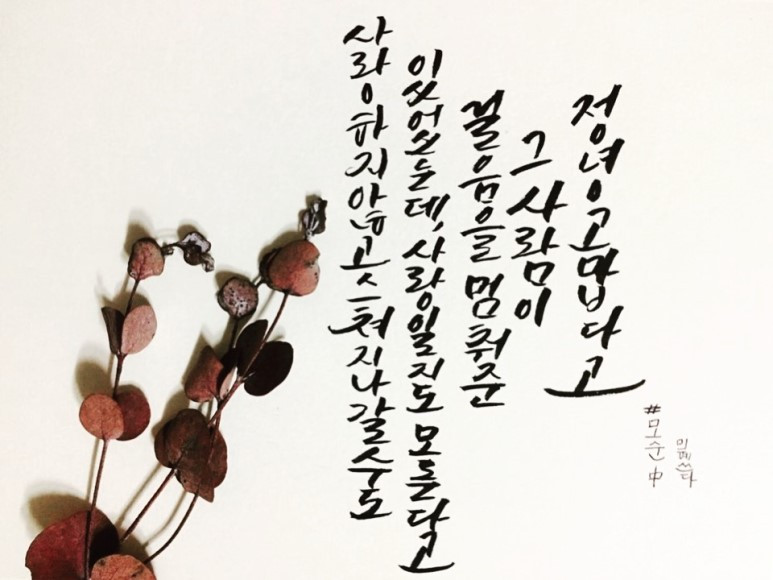 사랑하지 않고 스쳐 지나갈 수도
있었는데, 사랑일지도 모른다고
걸음을 멈춰준
그 사람이
정녕 고맙다고
#모순 中